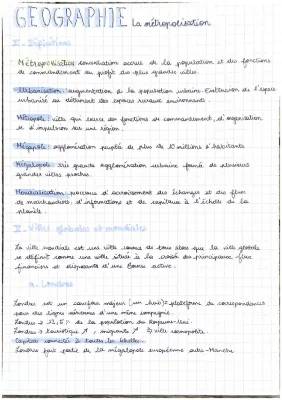 GEOGRAPHIE La métropolisation
I - Définitions
Métropolisation : concentration accrue de la population et des fonctions
de commandement au profit des plus grandes villes.
Urbanisation : augmentation de la population urbaine. Extension de l'espace
urbanisé au détriment des espaces ruraux environnant.
Métropole : ville qui exerce des fonctions de commandement, d'organisation
et d'impulsion sur une région.
Mégapole : agglomération peuplée de plus de 10 millions d'habitants
Mégalopole : très grande agglomération urbaine formé de plusieurs
grandes villes proches.
Mondialisation : processus d'accroissement des échanges et des flux
de marchandises, d'informations et de capitaux à l'échelle de la
planète.
II - Villes globales et mondiales
La ville mondiale est une ville connue de tous alors que la ville globale
se définit comme une ville située à la croisé des principaux flux
financiers et disposants d'une bourse active.
a. Londres
Londres est un carrefour majeur (un hub) = plateforme de correspondances
pour des lignes aériennes d'une même compagnie.
Londres → 12,5% de la population du Royaume-Uni.
Londres → touristique ↗, migrants ↗ ↳ ville cosmopolite
Capitale connectée à toutes les échelles
Londres fait partie de la mégalopole européenne outre-Manche